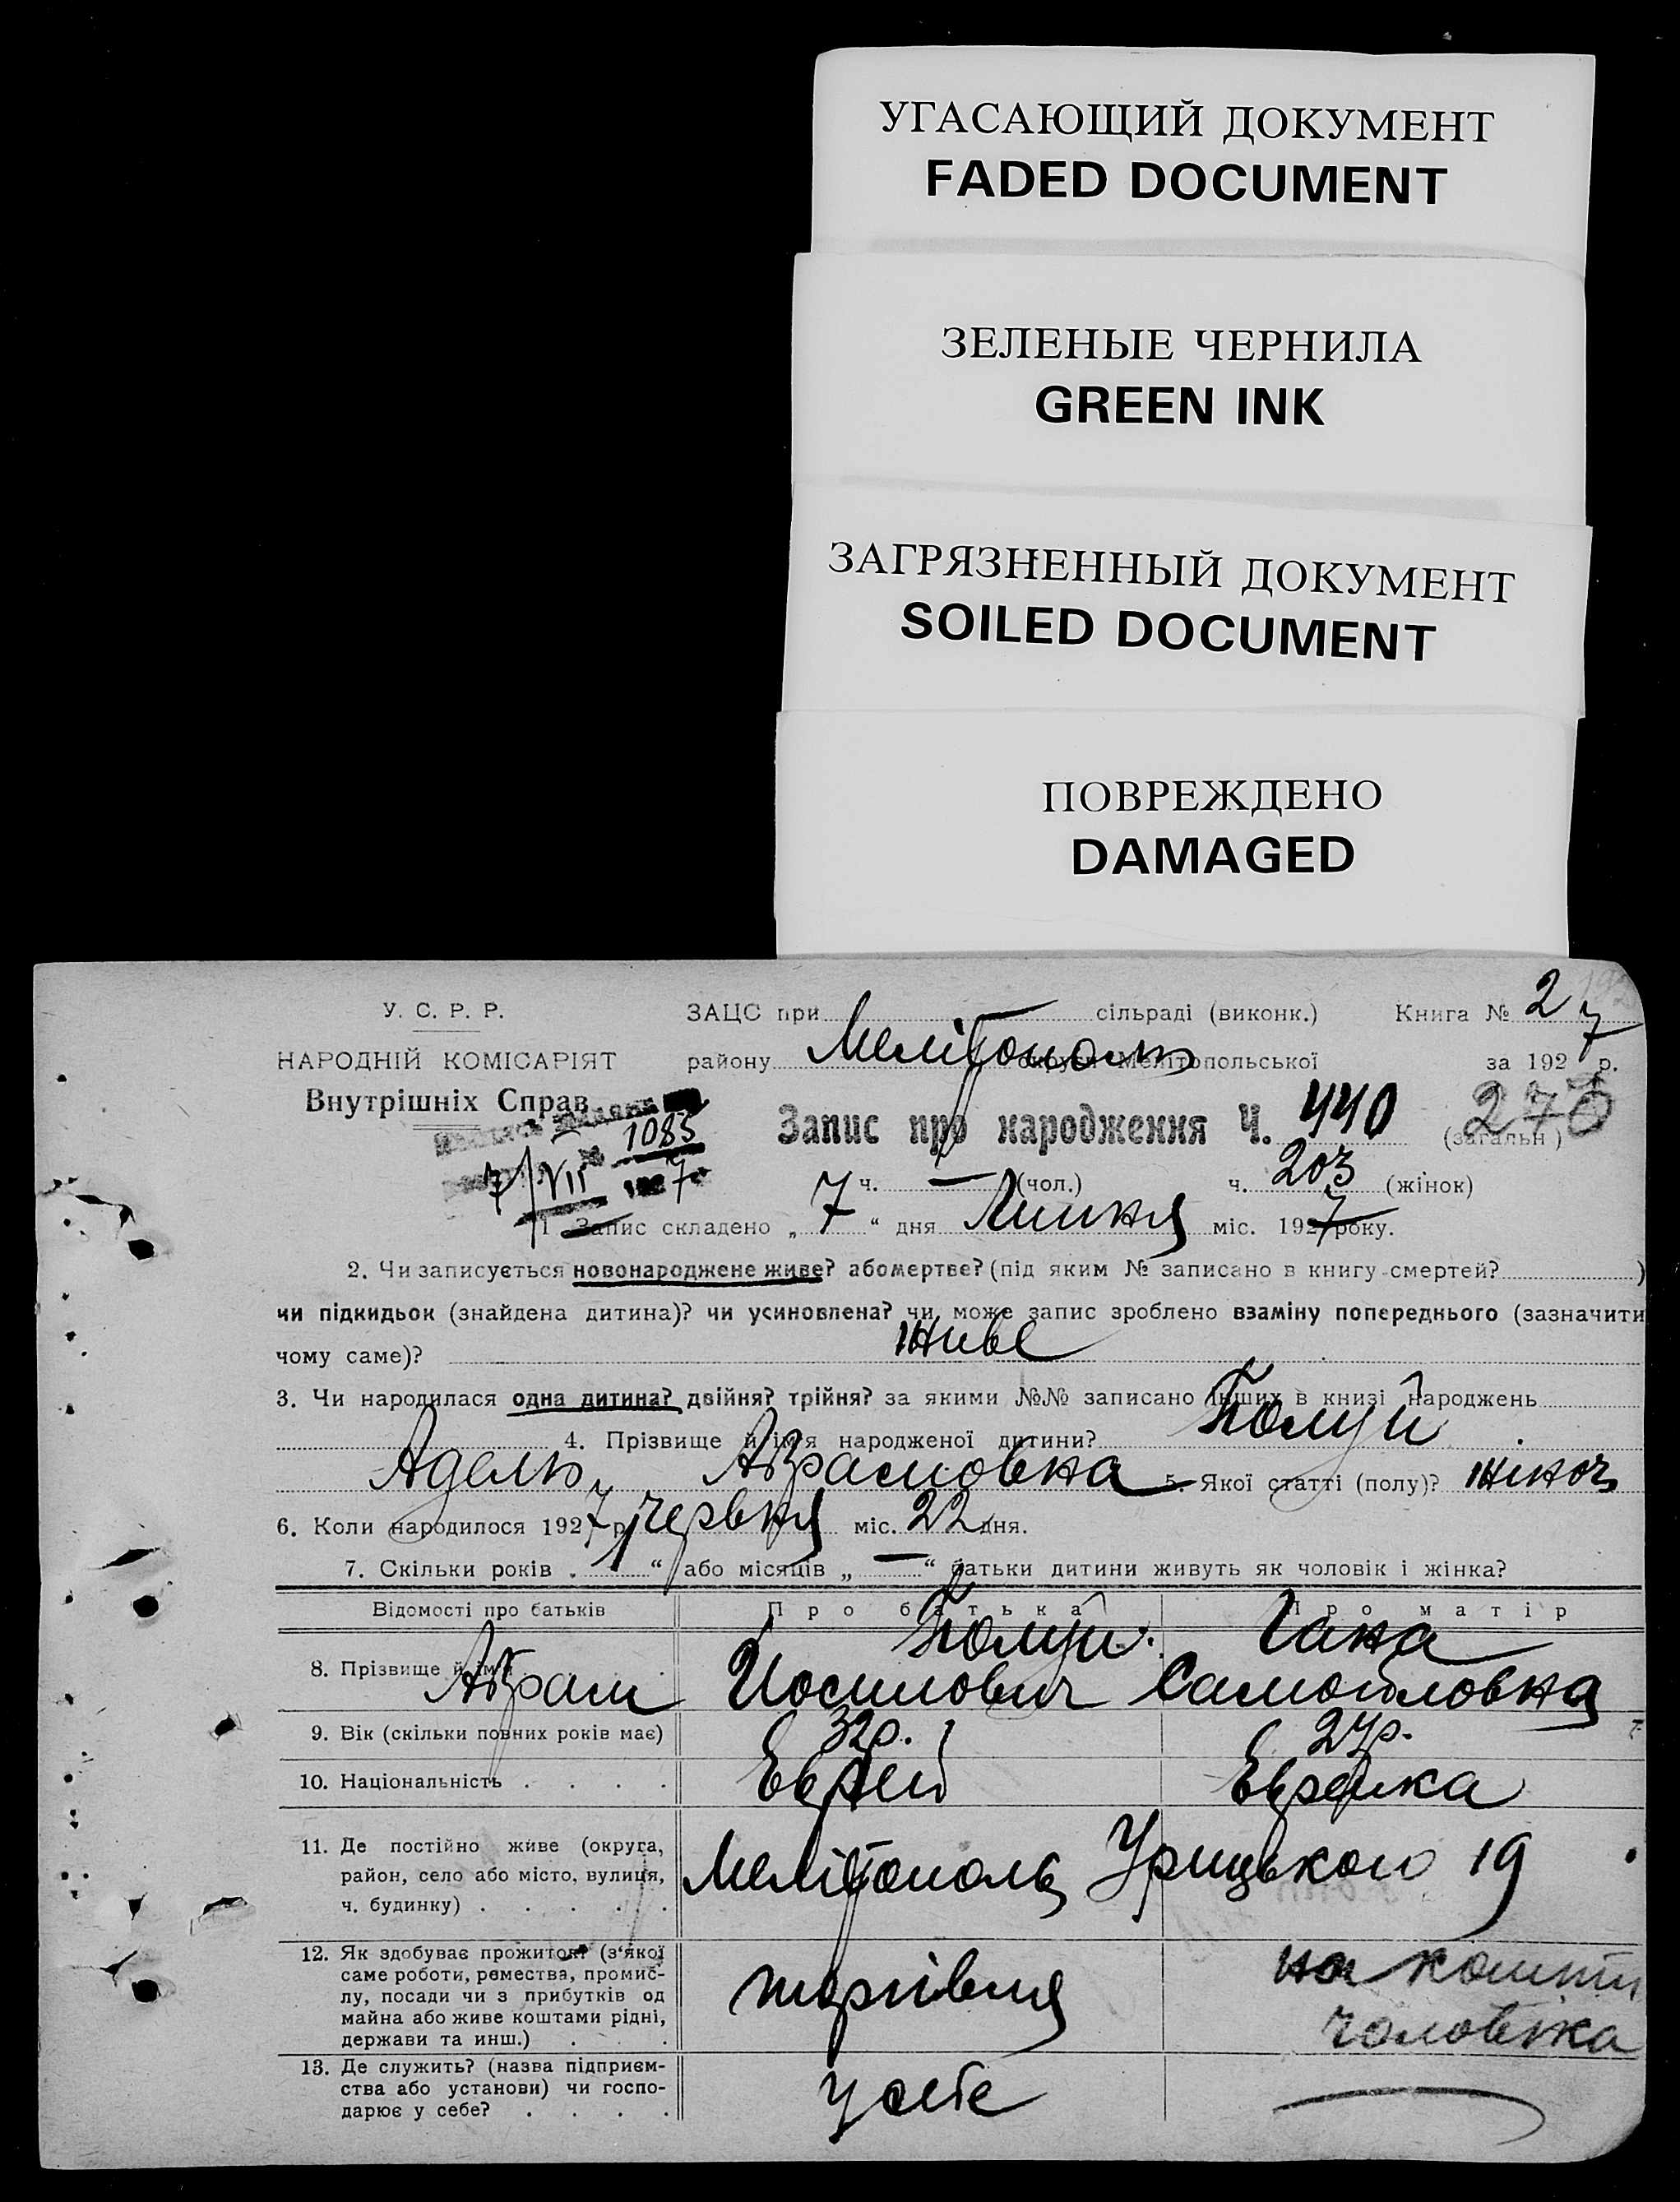 УГАСАЮЩИЙ ДОКУМЕНТ
FADED DOCUMENT
ЗЕЛЕНЫЕ ЧЕРНИЛА
GREEN INK
ЗАГРЯЗНЕННЫЙ ДОКУМЕНТ
SOILED DOCUMENT
ПОВРЕЖДЕНО
DAMAGED
У. С. Р. Р.
НАРОДНІЙ КОМІСАРІЯТ
Внутрішніх Справ
1085
7/VII 1927
ЗАЦС при сільраді (виконк.) Книга № 2
району Мелітополь округи Мелітопольської за 1927 р.
Запис про народження Ч. 440 (загальн) 270
ч. — (чол.) ч. 203 (жінок)
1 Запис складено „ 7 “ дня Липня міс. 1927 року.
2. Чи записується новонароджене живе? або мертве? (під яким № записано в книгу смертей? )
чи підкидьок (знайдена дитина)? чи усиновлена? чи, може запис зроблено взаміну попереднього (зазначити
чому саме)? живе
3. Чи народилася одна дитина? двійня? трійня? за якими №№ записано інших в книзі народжень
4. Прізвище й ім'я народженої дитини?
Адель Абрамовна 5. Якої статті (полу)? жіноч
6. Коли народилося 1927 р. червня міс. 22 дня.
7. Скільки років „ “ або місяців „ — “ батьки дитини живуть як чоловік і жінка?
Відомості про батьків Про батька Про матір
8. Прізвище й ім'я Абрам Иосипович Хана Самойловна
9. Вік (скільки повних років має) 32р. 27р.
10. Національність Еврей Еврейка
11. Де постійно живе (округа,
район, село або місто, вулиця,
ч. будинку) Мелітополь Урицького 19
12. Як здобуває прожиток? (з'якої
саме роботи, ремества, промис-
лу, посади чи з прибутків од
майна або живе коштами рідні,
держави та инш.) торгівля на кошти чоловіка
13. Де служить? (назва підприєм-
ства або установи) чи госпо-
дарює у себе? у себе